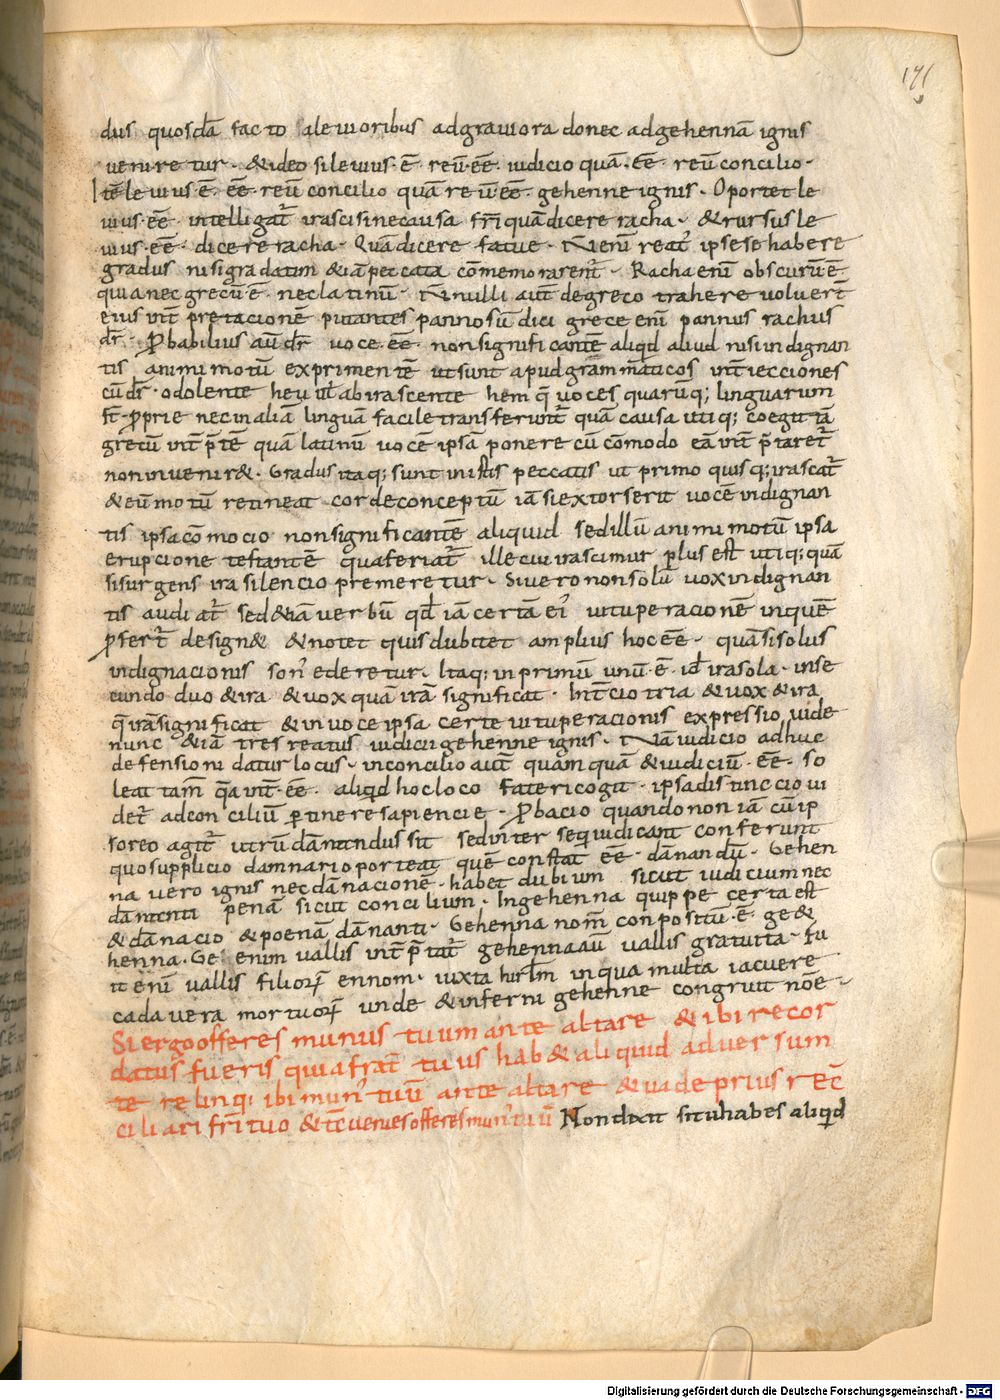 171
dus quosdā facto aleuioribus adgrauiora donec adgehennā ignis
ueniretur · & ideo sileuius · ē · reū · eē · iudicio quā · eē · reū concilio ·
Itē leuius · ē · eē · reū concilio quā reū · eē · gehenne ignis · Oportet le
uius · eē · intelligat̄ irasci sinecausa frī quā dicere racha · & rursus le
uius · eē · dicere racha · Quā dicere fatue · N̄ enī reat' ipse se habere
gradus nisi gradatim & iā peccata cōmemorarent̄ · Racha enī obscurū · ē ·
quia nec grecū · ē · nec latinū · N̄nulli aut̄ degreco trahere uoluert̄
eius int̄pretacionē putantes pannosū dici grece enī pannus rachus
dr̄ · Ꝓbabilius aū dr̄ uoce · eē · nonsignificantē aliqd aliud nisi indignan
tis animi motū exprimentē ut sunt apud grammaticos int̄iecciones
cū dr̄ · odolente heu ul̄ abirascente hem q̄ uoces quarūq; linguarum
st̄ · ꝓprie nec inaliā linguā facile transferunt̄ quā causa utiq; coegit iā
grecū int̄p̄tē quā latinū uocē ipsā ponere cū cōmodo eā int̄p̄taret̄
non inuenir& · Gradus itaq; sunt inistis peccatis ut primo quisq; irascat̄
& eū motū retineat corde conceptū iā si extorserit uocē indignan
tis ipsa cōmocio nonsignificantē aliquid sed illū animi motū ipsa
erupcione testantē qua feriat̄ ille cui irascimur plus est utiq; quā
sisurgens ira silencio premeretur · Si uero nonsolū uox indignan
tis audiat̄ sed & iā uerbū qd̄ iā certā ei' uituperacionē inquē
ꝓfert̄ design& & notet quis dubitet amplius hoc eē · quā si solus
indignacionis son' ederetur · Itaq; inprimū unū · ē · id̄ ira sola · inse
cundo duo & ira & uox quā irā significat · Int̄cio tria & uox & ira
q̄ irā significat & in uoce ipsa certe uituperacionis expressio uide
nunc & iā tres reatus iudicii gehenne ignis · Nā iudicio adhuc
defensioni datur locus · inconcilio aut̄ quam quā & iudiciū · eē · so
leat tam̄ q̄a int̄ · eē · aliqd hoc loco fateri cogit · ipsa distinccio ui
det̄ ad conciliū ꝑtinere sapiencie · Ꝓbacio quando non iā cū ip
so reo agit̄ utrū dāmnandus sit sed inter se qui iudicant conferunt
quo supplicio damnari oporteat quē constat eē · dānandū · Gehen
na uero ignis nec dānacionē · habet dubium sicut iudicium nec
dāmnati penā sicut concilium · Ingehenna quippe certa est
& dānacio & poenā dānanti · Gehenna nom̄ conpositū · ē · ge &
henna · Ge enim uallis int̄p̄tat̄ gehenna aū uallis gratuita · Fu
it enī uallis filior̄ ennom · iuxta hirl̄m in qua multa iacuere
cadauera mortuor̄ unde & inferni gehenne congruit nōe ·
Si ergo offeres munus tuum ante altare & ibi recor
datus fueris quia frat̄ tuus hab& aliquid aduersum
te relinq; ibi mun' tuū ante altare & uade prius rec̄
ciliari frī tuo & tc̄ uenies offeres mun' tuū Non dixit si tu habes aliqd
Digitalisierung gefördert durch die Deutsche Forschungsgemeinschaft - DFG